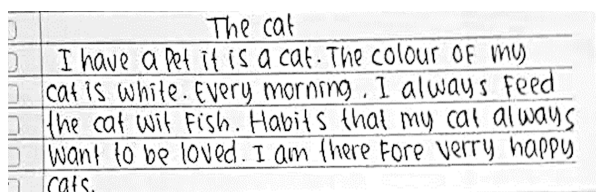 The cat
I have a Pet it is a cat. The colour of my
cat is white. Every morning. I always feed
the cat wit Fish. Habits that my cat always
want to be loved. I am there fore verry happy
cats.